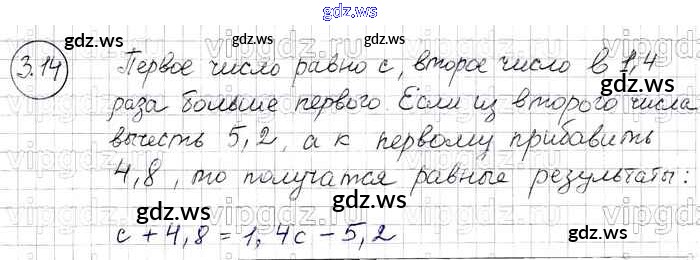 gdz.ws
3.14 Первое число равно c, второе число в 1,4
раза больше первого. Если из второго числа
вычесть 5,2, а к первому прибавить
4,8, то получатся равные результаты:
c + 4,8 = 1,4c - 5,2